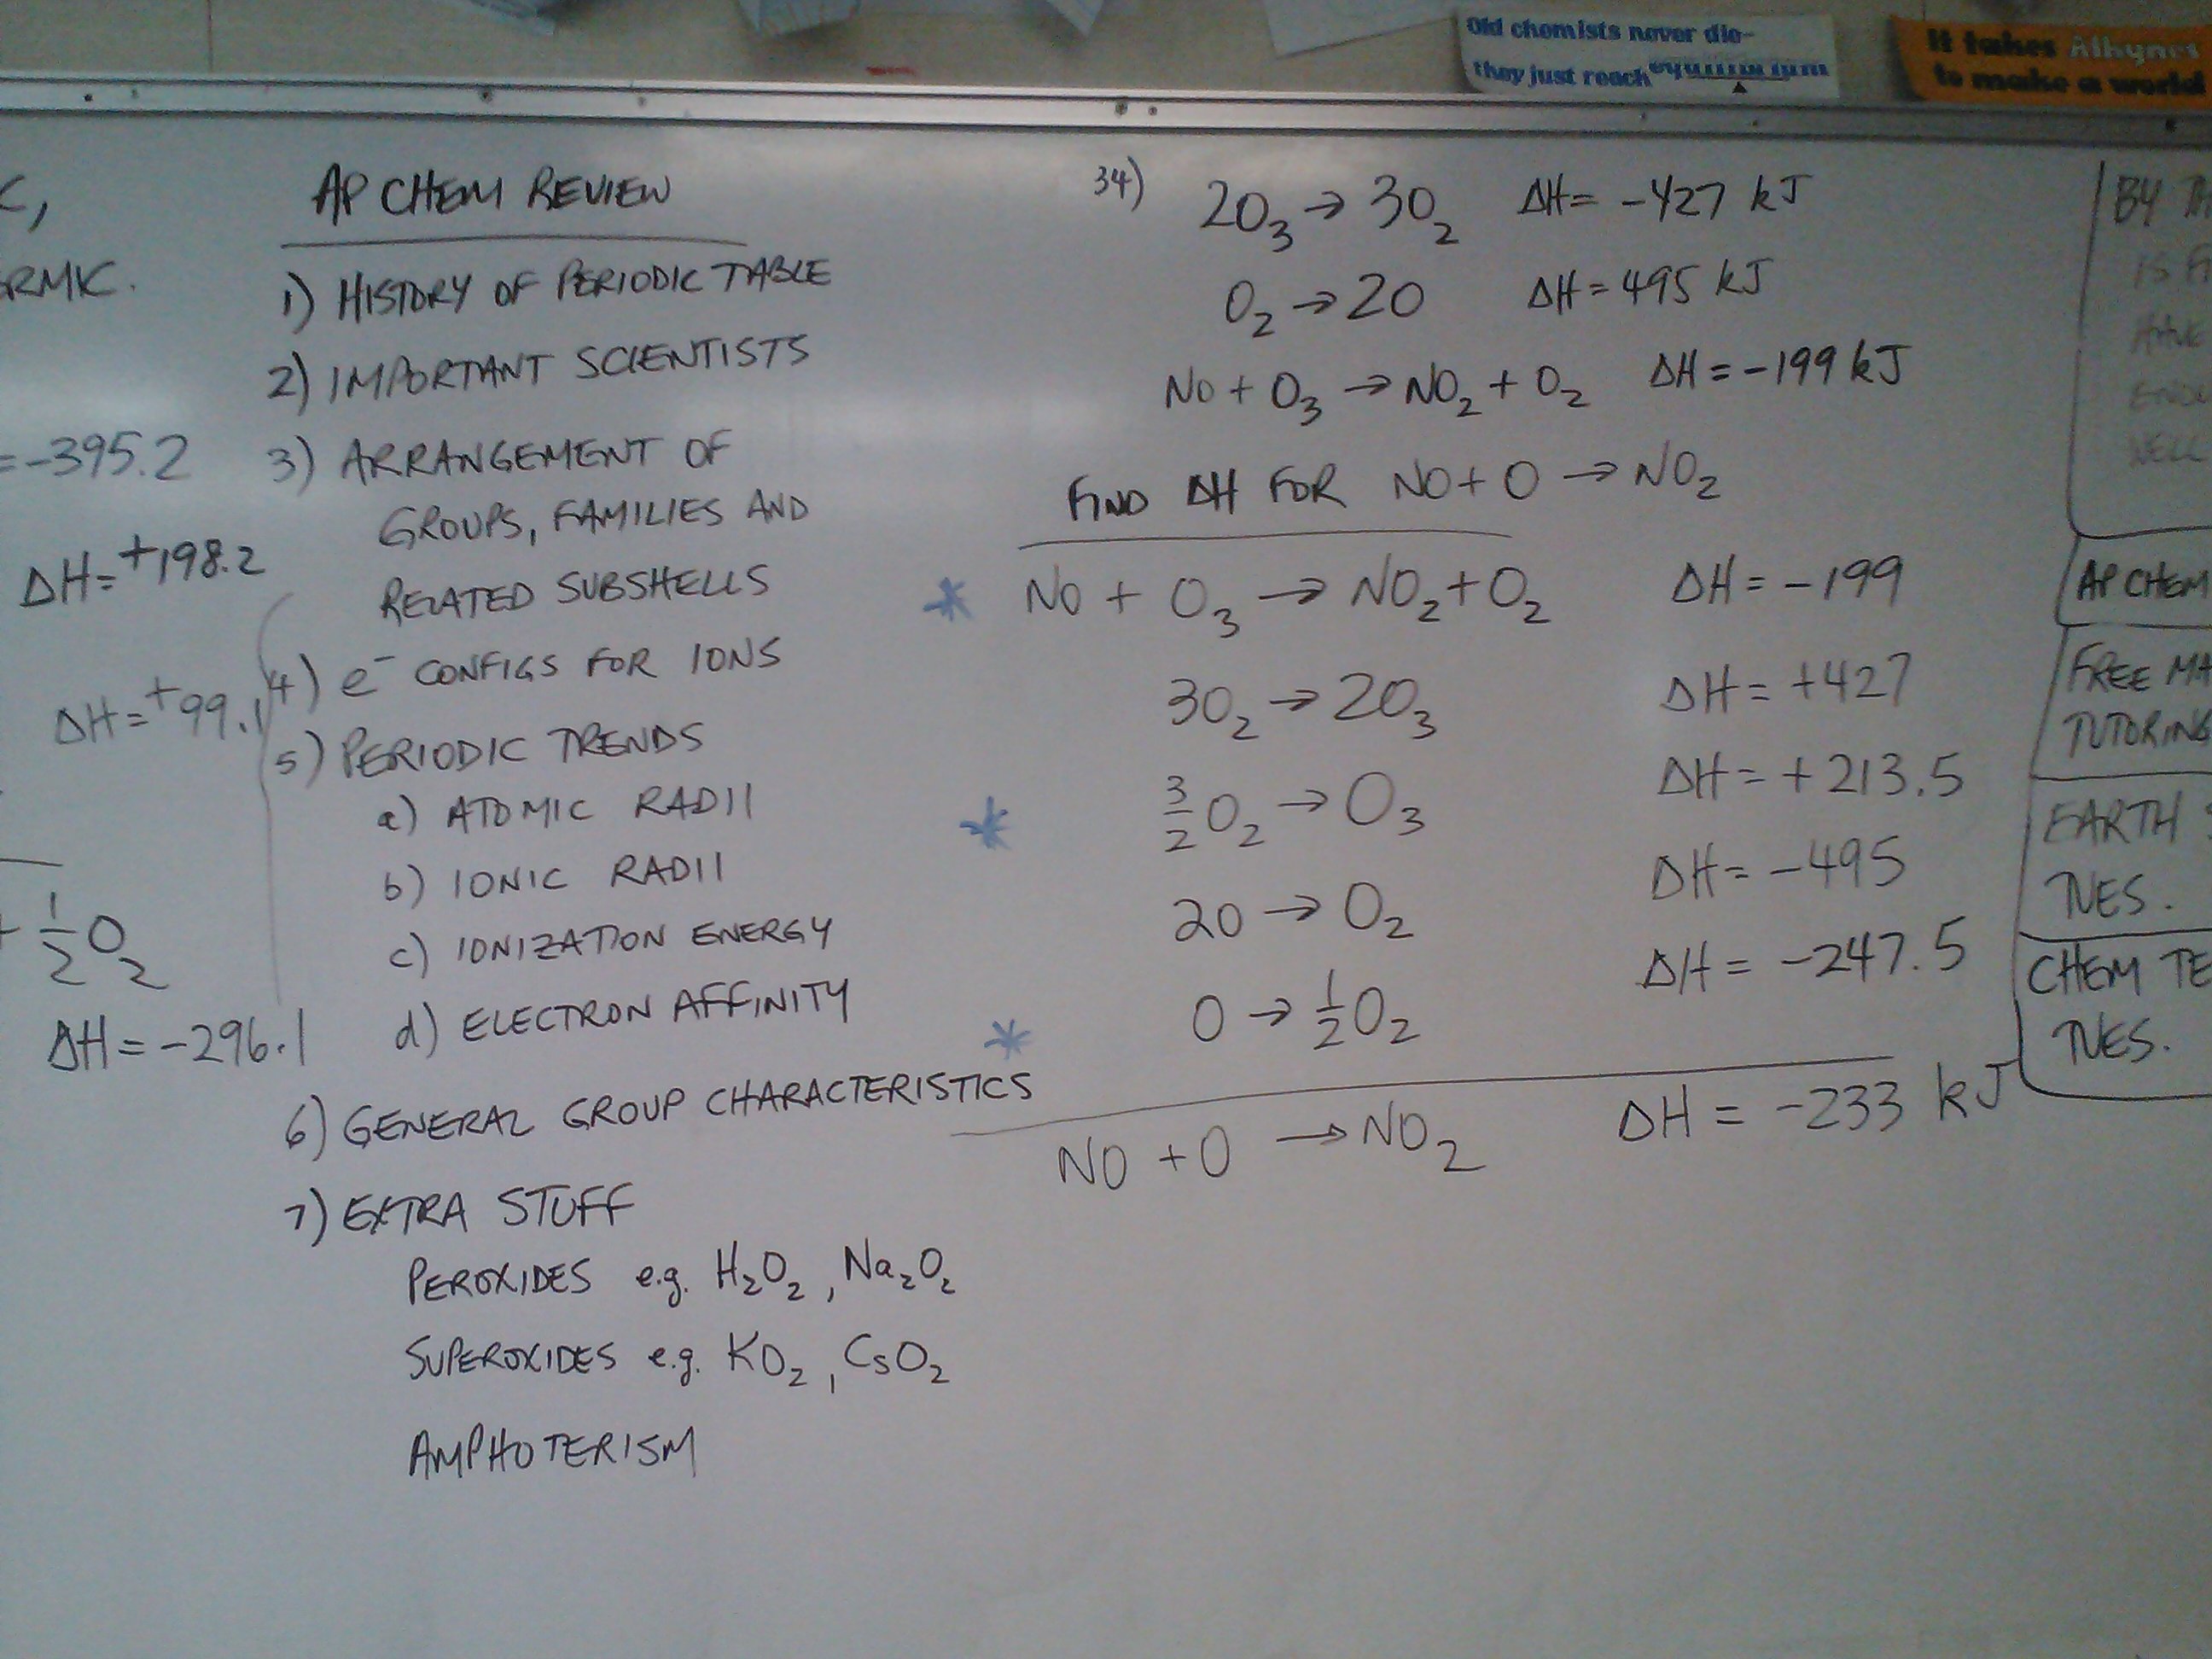 Old chemists never die-
they just reach equilibrium
It takes Alkynes
to make a world
C,
RMK.
=-395.2
ΔH=+198.2
ΔH=+99.1
½O₂
ΔH=-296.1
AP CHEM REVIEW
1) HISTORY OF PERIODIC TABLE
2) IMPORTANT SCIENTISTS
3) ARRANGEMENT OF
GROUPS, FAMILIES AND
RELATED SUBSHELLS
4) e⁻ CONFIGS FOR IONS
5) PERIODIC TRENDS
a) ATOMIC RADII
b) IONIC RADII
c) IONIZATION ENERGY
d) ELECTRON AFFINITY
6) GENERAL GROUP CHARACTERISTICS
7) EXTRA STUFF
PEROXIDES e.g. H₂O₂, Na₂O₂
SUPEROXIDES e.g. KO₂, CsO₂
AMPHOTERISM
34) 2O₃ → 3O₂ ΔH= -427 kJ
O₂ → 2O ΔH= 495 kJ
NO + O₃ → NO₂ + O₂ ΔH = -199 kJ
FIND ΔH FOR NO + O → NO₂
* NO + O₃ → NO₂ + O₂ ΔH = -199
3O₂ → 2O₃ ΔH = +427
* 3/2 O₂ → O₃ ΔH = +213.5
2O → O₂ ΔH = -495
* O → ½O₂ ΔH = -247.5
NO + O → NO₂ ΔH = -233 kJ
BY TH
IS F
HAVE
NELL
AP CHEM
FREE MA
TUTORING
EARTH S
TUES.
CHEM TE
TUES.